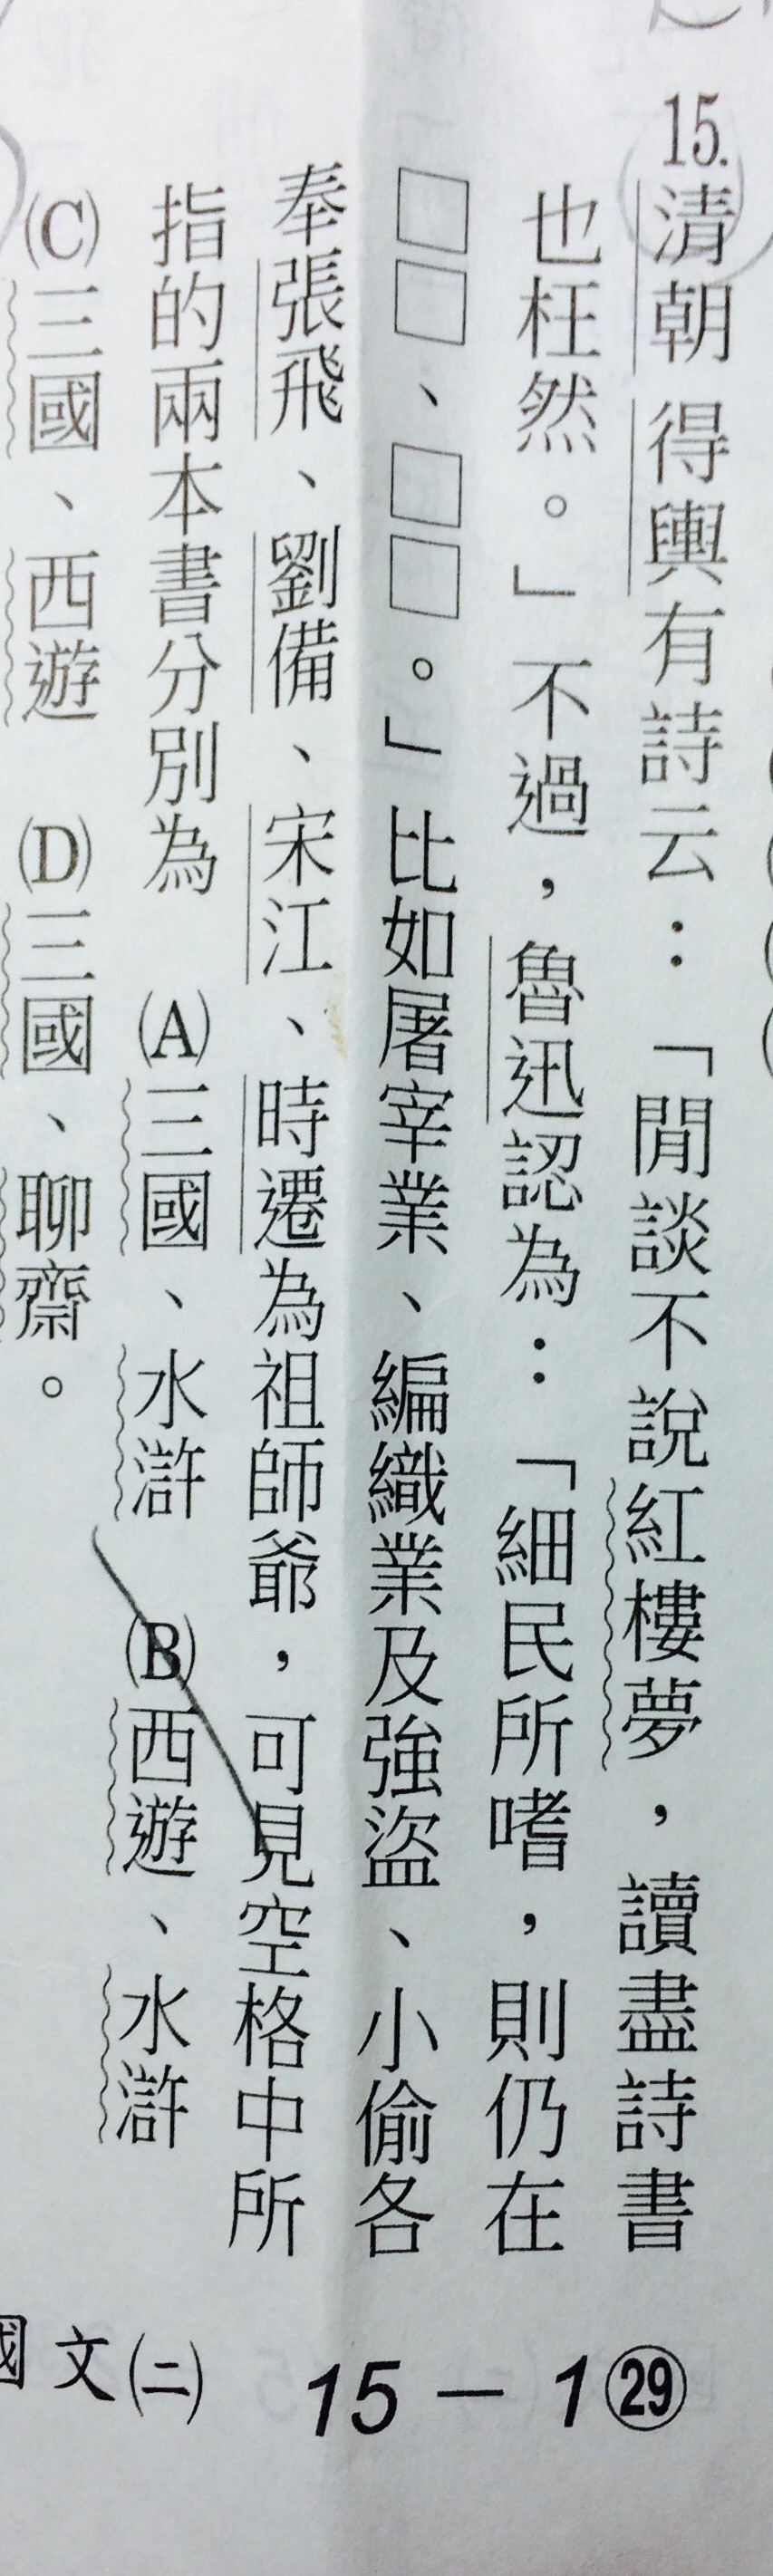 15.清朝得輿有詩云：「閒談不說紅樓夢，讀盡詩書
也枉然。」不過，魯迅認為：「細民所嗜，則仍在
□□、□□。」比如屠宰業、編織業及強盜、小偷各
奉張飛、劉備、宋江、時遷為祖師爺，可見空格中所
指的兩本書分別為　(A)三國、水滸　(B)西遊、水滸
(C)三國、西遊　(D)三國、聊齋。
國文(二)　15－1㉙